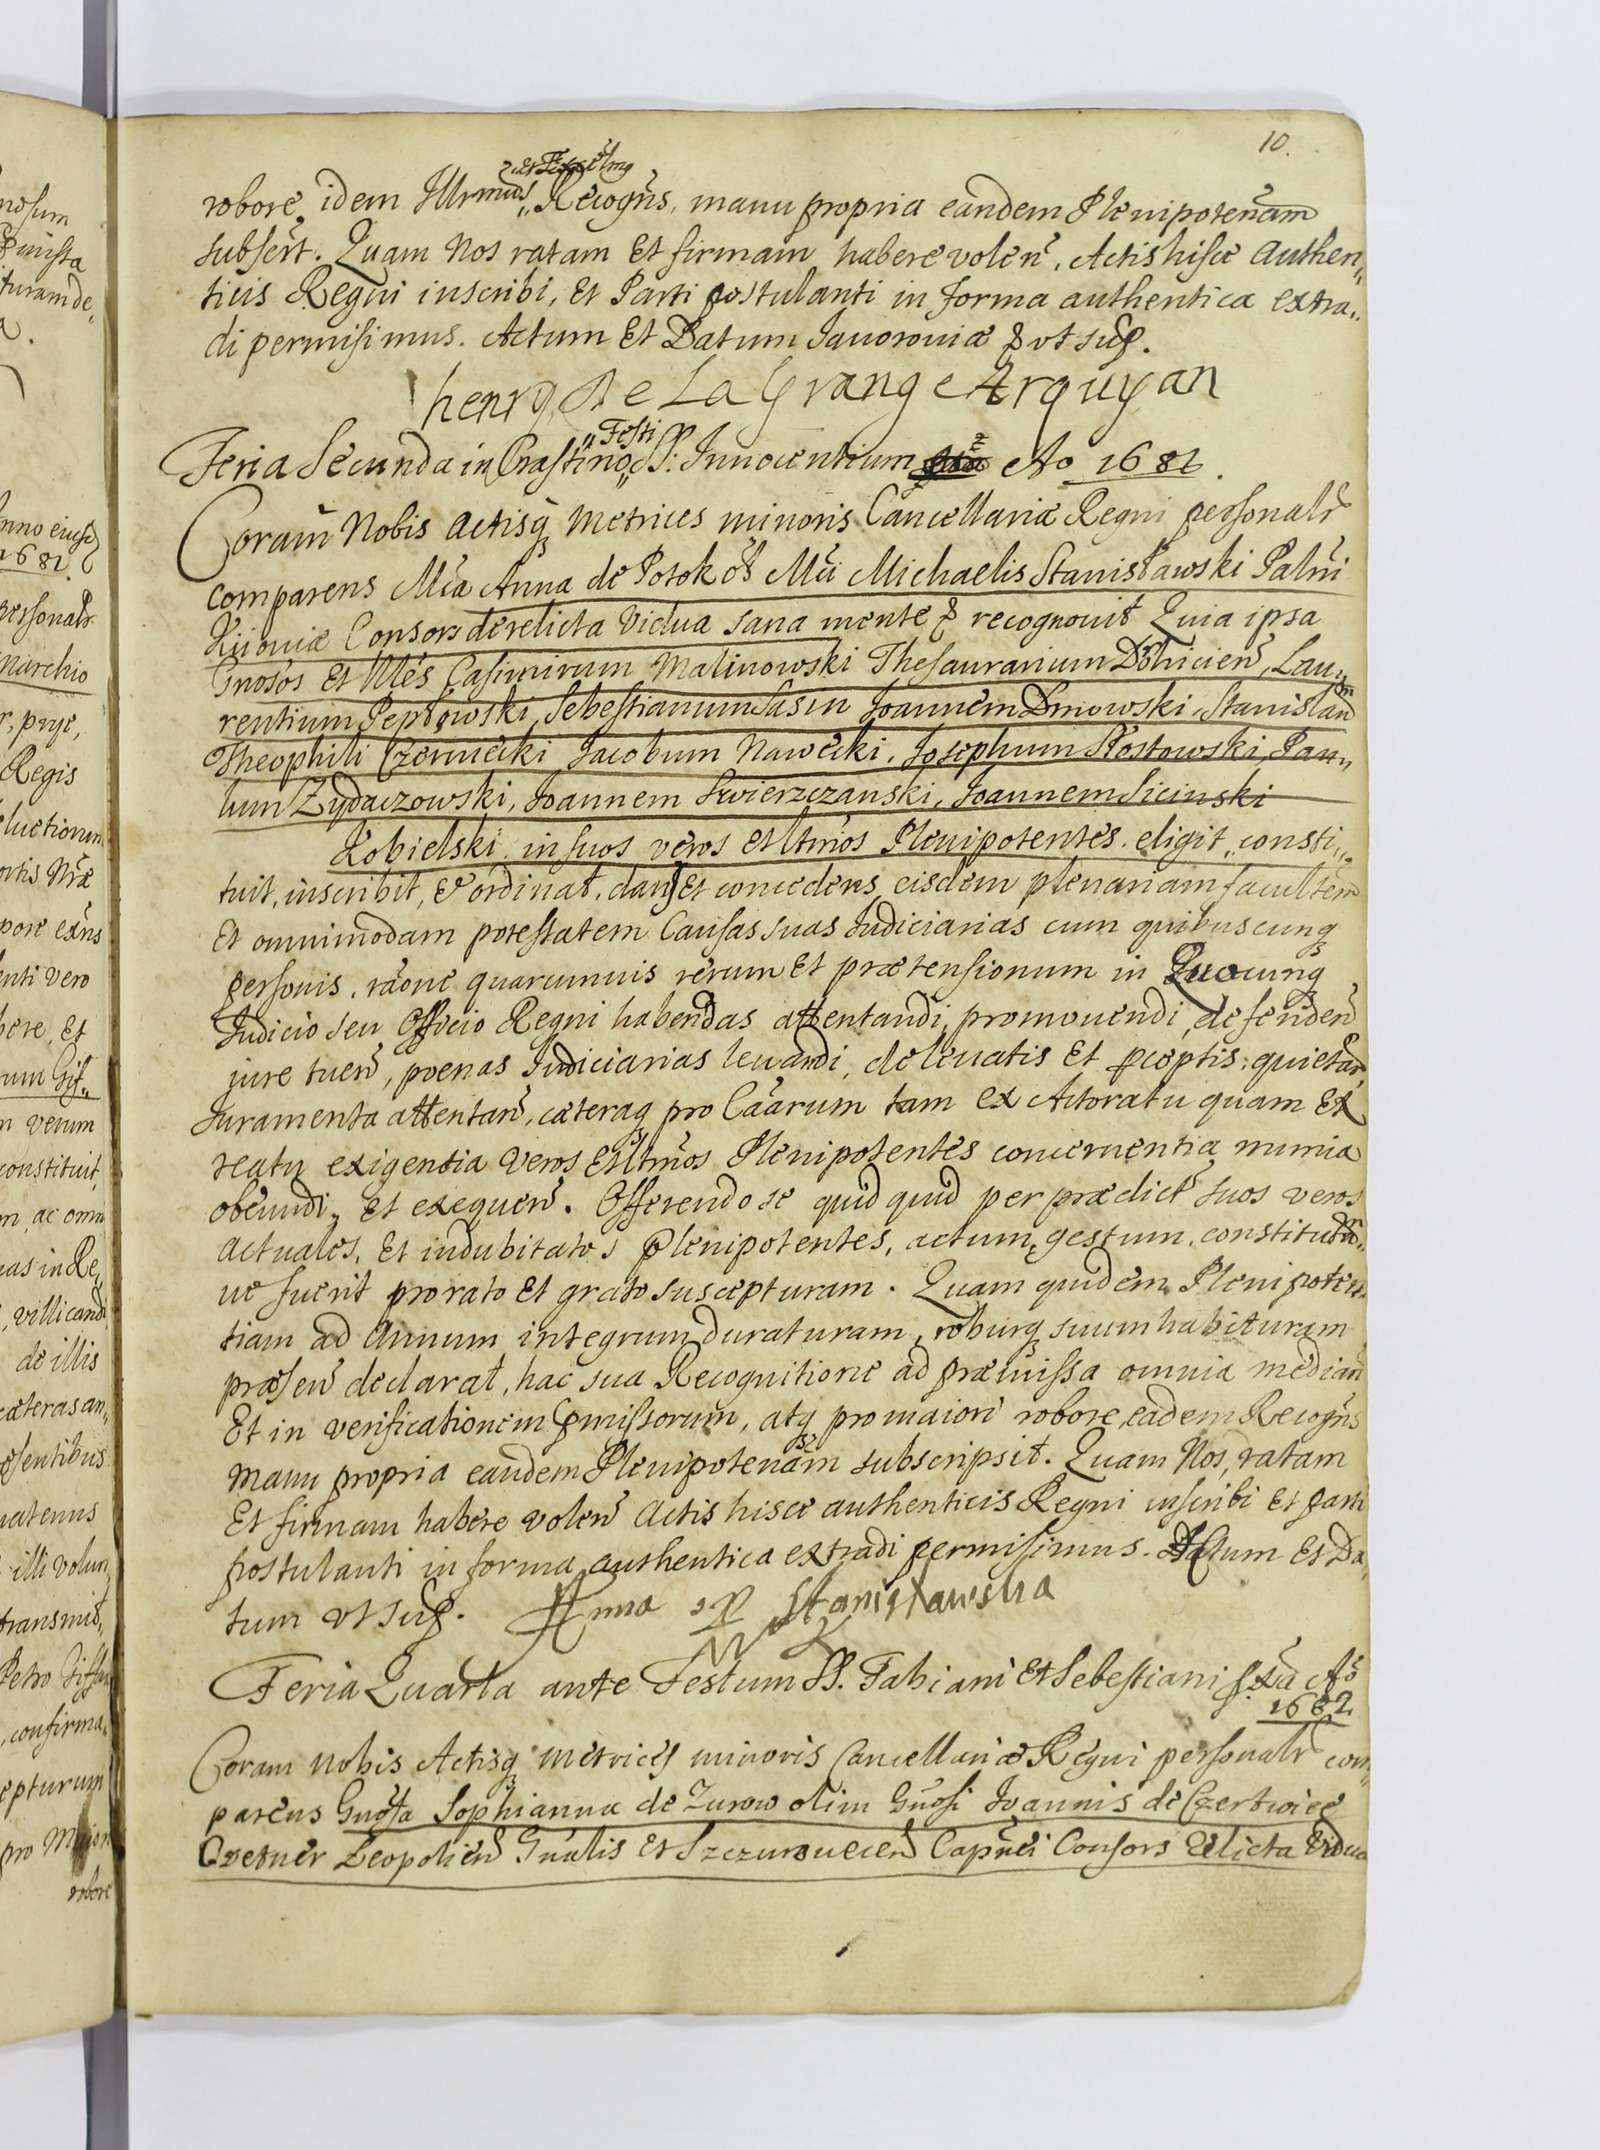 10.
robore, idem Illrmus Recogñs, manu propria eandem Plenipotenãm
subscrt. Quam Nos ratam Et firmam habere volen̄. Actis hisce Authen„
ticis Regni inscribi, Et Parti postulanti in forma authentica extra„
di permisimus. Actum Et Datum Iavoroviæ & vt sup.
henry De La Grange Arquyan
Feria Secunda in Crastino „Festi SS: Innocentium Ao 1681.
Coram Nobis Actisq Metrices minoris Cancellariæ Regni personalr
comparens Mća Anna de Potok ol Mći Michaelis Stanisławski Palni
Kijoviæ Consors derelicta Vidua sana mente & recognovit Quia ipsa
Gnosos Et Nles Casimirum Malinowski Thesaurarium Dolricien̄, Lau„
rentium Peptowski, Sebestianum Sasin Joannem Dmowski, Stanislau
Theophili Czerniecki Jacobum Nawecki, Josephum Rostowski, Pau„
lum Zydaczowski, Joannem Swierzczanski, Joannem Sicinski
Kobielski, in suos veros Et ltmos Plenipotentes. eligit, consti„
tuit, inscribit, & ordinat, dans Et concedens eisdem plenariam facultem
Et omnimodam potestatem Causas suas Judiciarias cum quibuscunq
personis, raõne quarumvis rerum Et prætensionum in Quocunq
Judicio seu Officio Regni habendas attentandi, promovendi, defenden̄
jure tuen̄, pœnas Judiciarias levandi, de levatis Et pceptis quietan̄,
Juramenta attentan̄, cæteraq pro Caarum tam ex Actoratu quam Ex
reatu exigentia Veros Et ltmos Plenipotentes concernentia munia
obeundi, Et exequen̄. Offerendo se quidquid per prædict suos veros
actuales, Et indubitatos Plenipotentes, actum, gestum, constitutum„
ve fuerit pro rato Et grato suscepturam. Quam quidem Plenipoten„
tiam ad Annum integrum duraturam, roburq suum habituram
præsen̄ declarat, hac sua Recognitione ad præmissa omnia median̄
Et in verificationem pmissorum, atq pro maiori robore, eadem Recogñs
manu propria eandem Plenipotenãm subscripsit. Quam Nos, ratam
Et firmam habere volen̄ Actis hisce authenticis Regni inscribi Et parti
postulanti in forma authentica extradi permisimus. Actum Et Da„
tum vt sup. Anna Stanisławska
Feria Quarta ante Festum SS. Fabiani Et Sebestiani Ao
1682
Coram nobis Actisq Metrices minoris Cancellariæ Regni personalr com
parens Gnosa Sophianna de Zurow olim Gnosi Joannis de Czertwice
Cvetner Leopolien̄ Gnalis Et Szczurovecen̄ Capnei Consors relicta Vidua